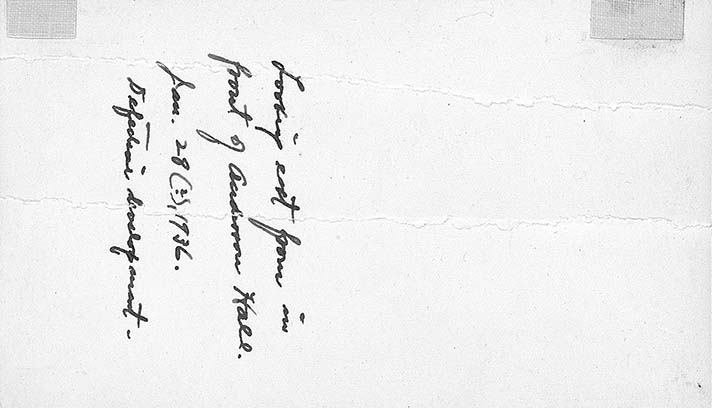 Looking east from in
front of Anderson Hall.
Jan. 28(?), 1936.
Defective development.